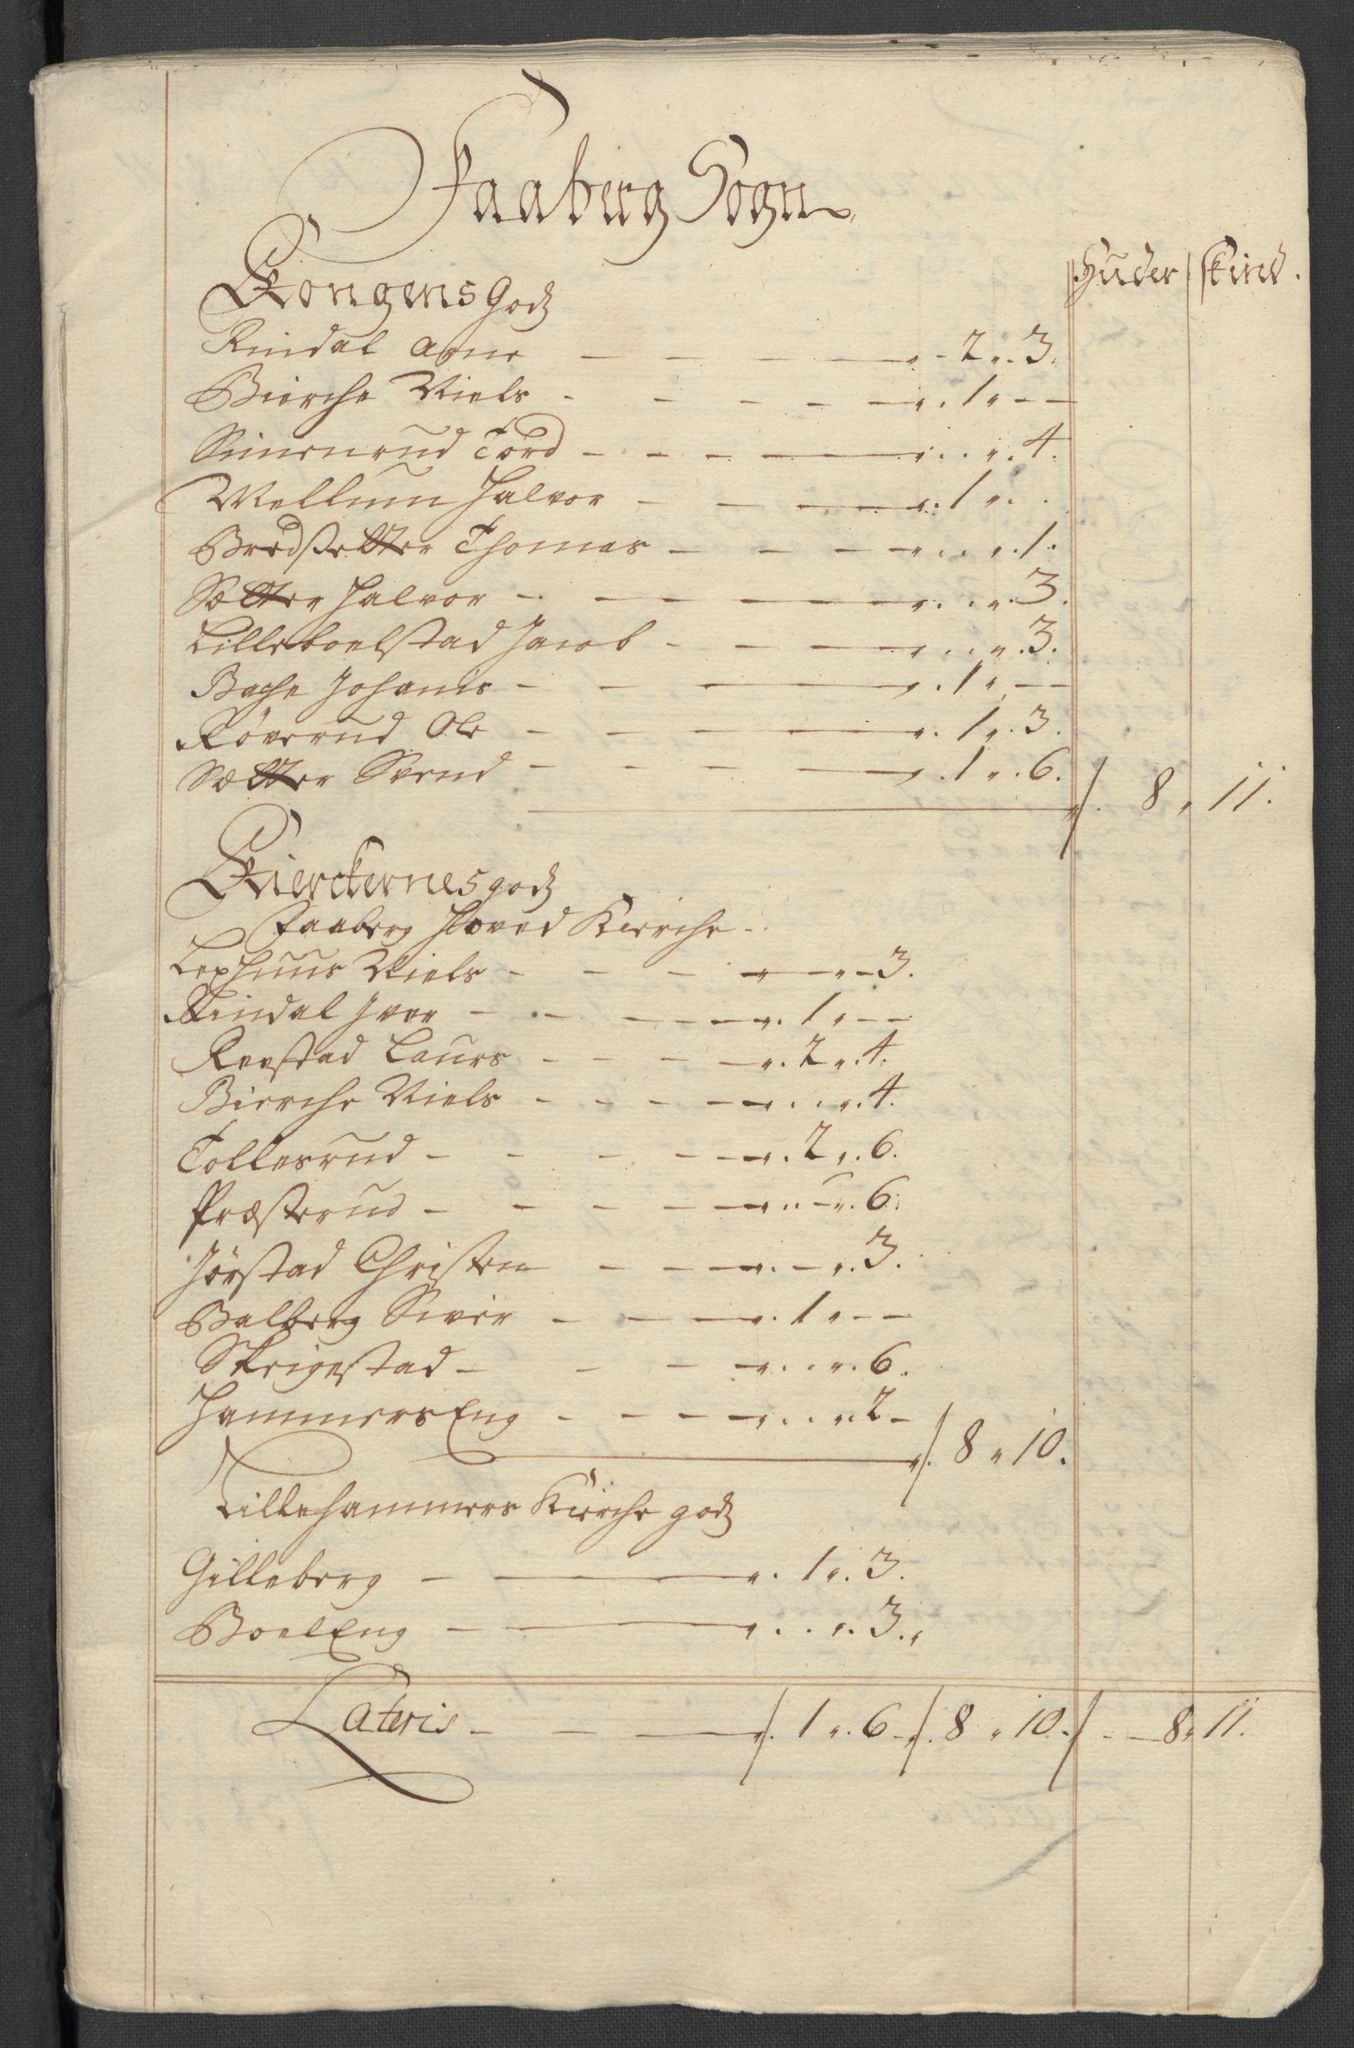 Faaberg Sogn
Huder skind.
Kongens Godz
Rindal Arne - - - - 2 " 3.
Bierche Niels - - - - 1 " - -
Simenrud Tord - - - - " 4.
Mellum Halvor - - - - 1 "
Bredsetter Thomas - - - - " 1.
Sætter Halvor - - - - " 3.
Lilleboelstad Jacob - - - " 3.
Bache Johanis - - - 1 " - -
Røverud Ole - - - - 1 " 3.
Sætter Svend - - - - 1 " 6.
8 " 11.
Kierckernes godz
Faaberg Hoved Kierche
Niels - - - " - 3.
Rindal Iver - - - 1 " - -
Revstad Laurs - - - 2 " 4.
Bierche Niels - - - - " 4.
Tollesrud - - - - 2 " 6.
Præsterud - - - - " 6.
Jørstad Christen - - - " 3.
Balberg Siver - - - 1 " - -
Skrigestad - - - " 6.
Hammers Eng - - - - " 2 -
8 " 10.
Lillehammers Kierche godz
Gilleberg - - 1 " 3.
Boel Eng - - " 3.
Lateris - - - 1 " 6 - 8 " 10. - 8 " 11.